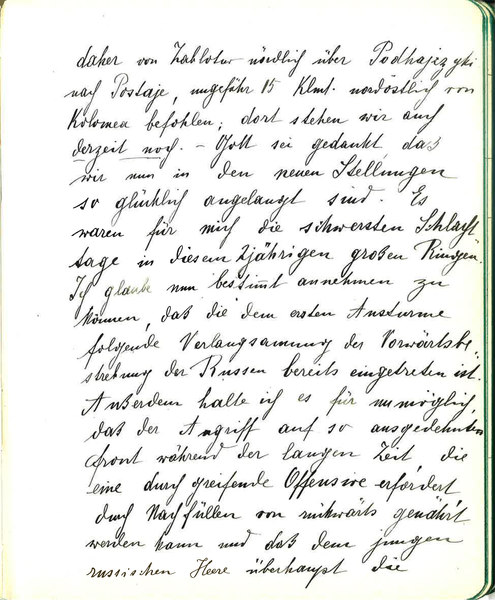 daher von Zablotow nördlich über Podhajczyki
nach Postaje, ungefähr 15 Klmt. nordöstlich von
Kolomea befohlen; dort stehen wir auch
derzeit noch. - Gott sei gedankt daß
wir nun in den neuen Stellungen
so glücklich angelangt sind. Es
waren für mich die schwersten Schlacht
tage in diesem 2jährigen großen Ringen.
Ich glaube nun bestimmt annehmen zu
können, daß die dem ersten Ansturme
folgende Verlangsamung der Vorwärtsbe"
strebung der Russen bereits eingetreten ist.
Außerdem halte ich es für unmöglich,
daß der Angriff auf so ausgedehnten
Front während der langen Zeit die
eine durchgreifende Offensive erfordert
durch Nachfüllen von rückwärts genährt
werden kann und daß dem jungen
russischen Heere überhaupt die